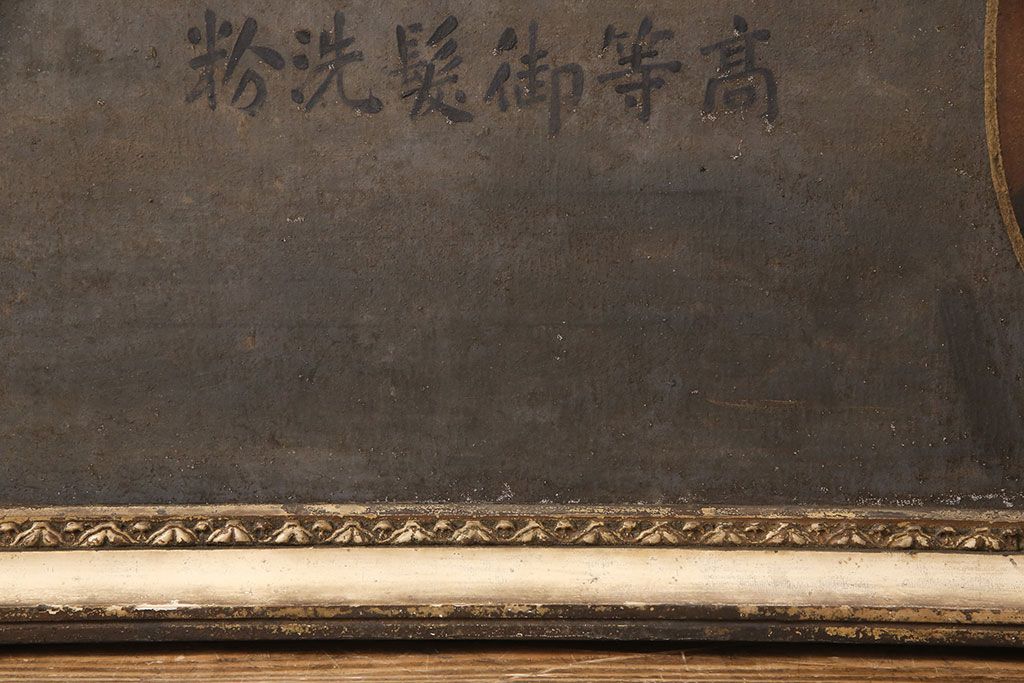 高等御髪洗粉